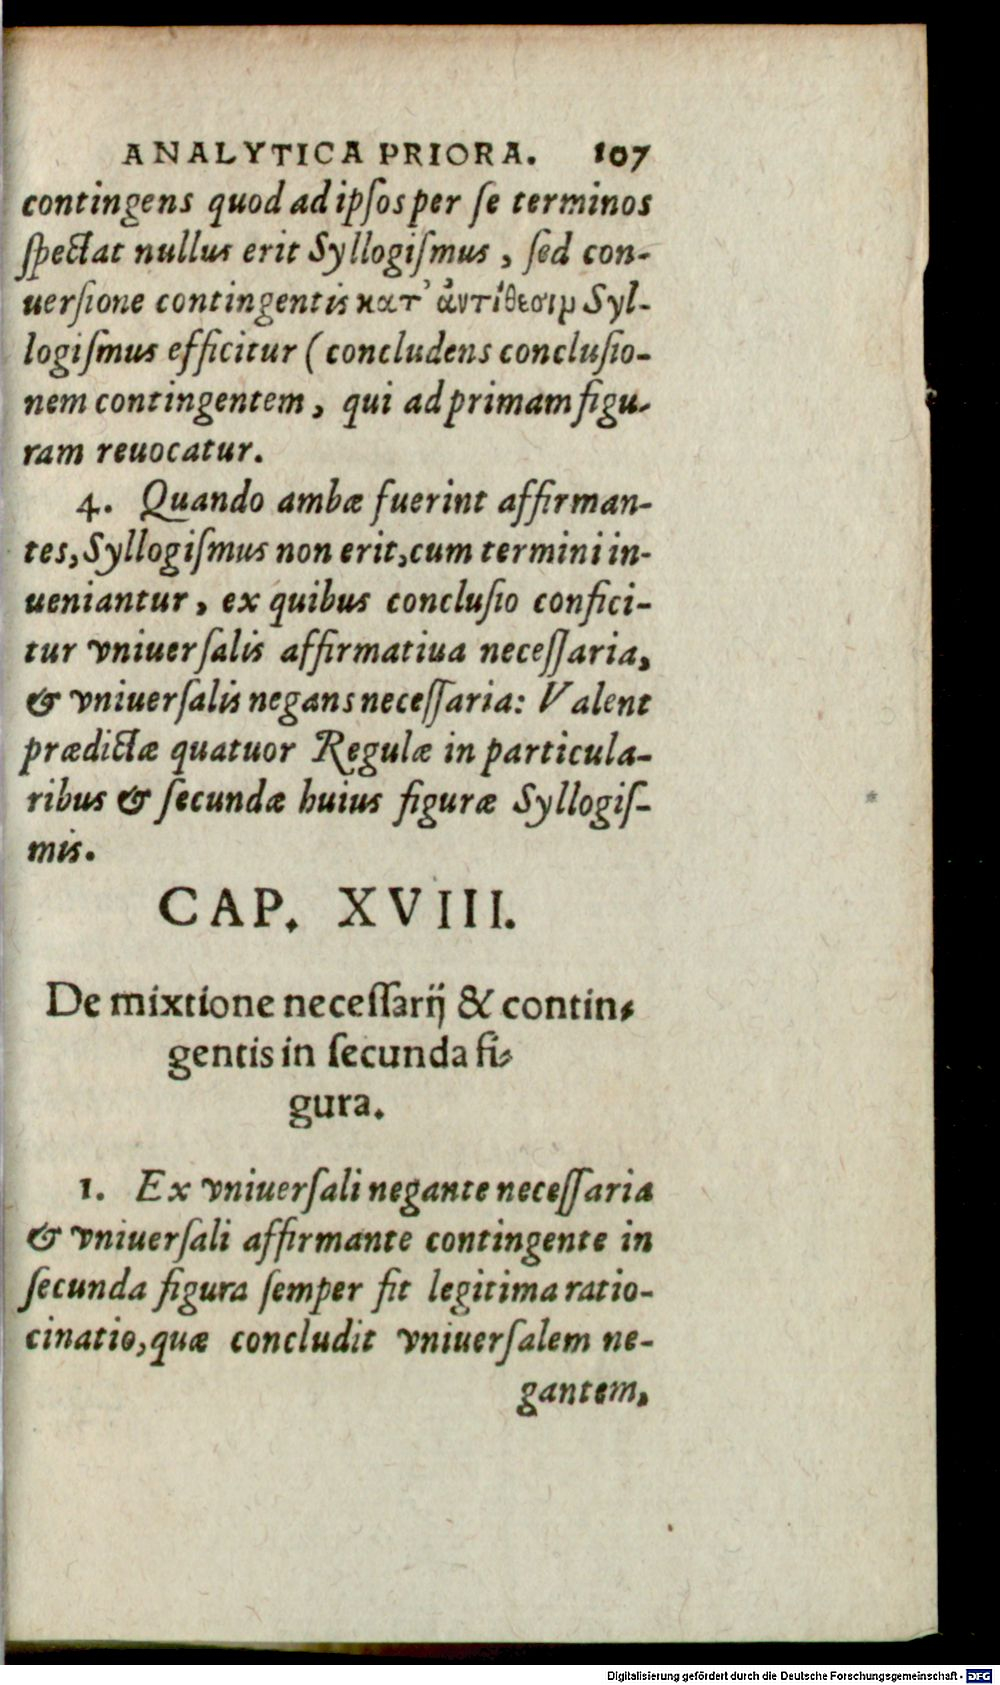 ANALYTICA PRIORA. 107
contingens quod ad ipſos per ſe terminos
ſpectat nullus erit Syllogiſmus, ſed con-
uerſione contingentis κατ᾽ ἀντίθεσιμ Syl-
logiſmus efficitur (concludens concluſio-
nem contingentem, qui ad primam figu-
ram reuocatur.
4. Quando ambæ fuerint affirman-
tes, Syllogiſmus non erit, cum termini in-
ueniantur, ex quibus concluſio confici-
tur vniuerſalis affirmatiua neceſſaria,
& vniuerſalis negans neceſſaria: Valent
prædictæ quatuor Regulæ in particula-
ribus & ſecundæ huius figuræ Syllogiſ-
mis.
CAP. XVIII.
De mixtione neceſſarij & contin-
gentis in ſecunda fi-
gura.
1. Ex vniuerſali negante neceſſaria
& vniuerſali affirmante contingente in
ſecunda figura ſemper fit legitima ratio-
cinatio, quæ concludit vniuerſalem ne-
gantem,
Digitalisierung gefördert durch die Deutsche Forschungsgemeinschaft - DFG